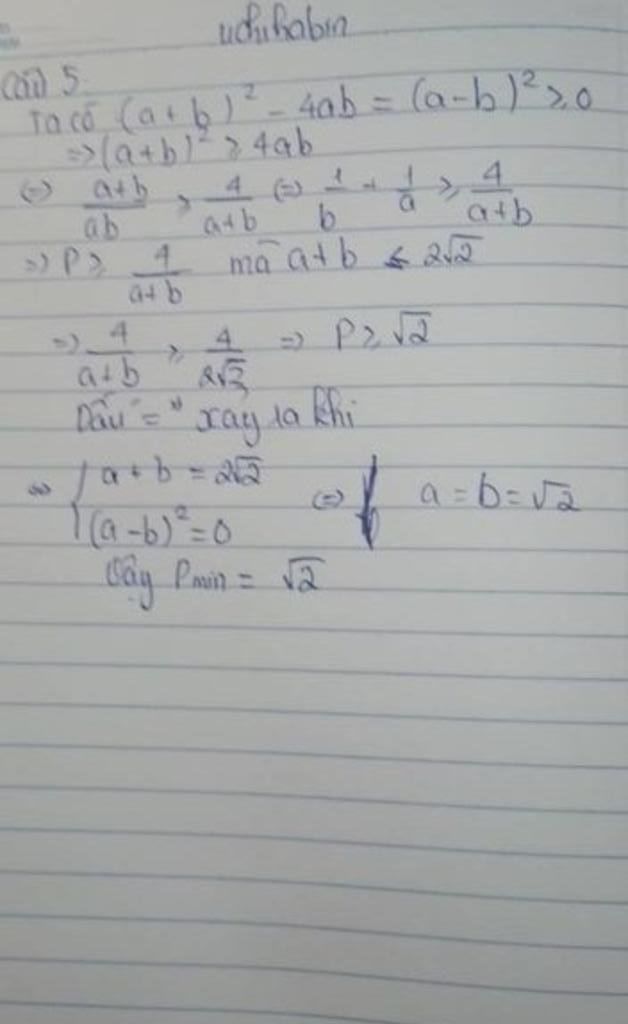 uchihabin
Câu 5.
Ta có (a+b)² - 4ab = (a-b)² ≥ 0
=> (a+b)² ≥ 4ab
<=> \frac{a+b}{ab} ≥ \frac{4}{a+b} <=> \frac{1}{b} + \frac{1}{a} ≥ \frac{4}{a+b}
=> P ≥ \frac{4}{a+b} mà a+b ≤ 2√2
=> \frac{4}{a+b} ≥ \frac{4}{2√2} => P ≥ √2
Dấu "=" xảy ra khi
<=> { a+b = 2√2
(a-b)² = 0 <=> a = b = √2
Vậy Pmin = √2